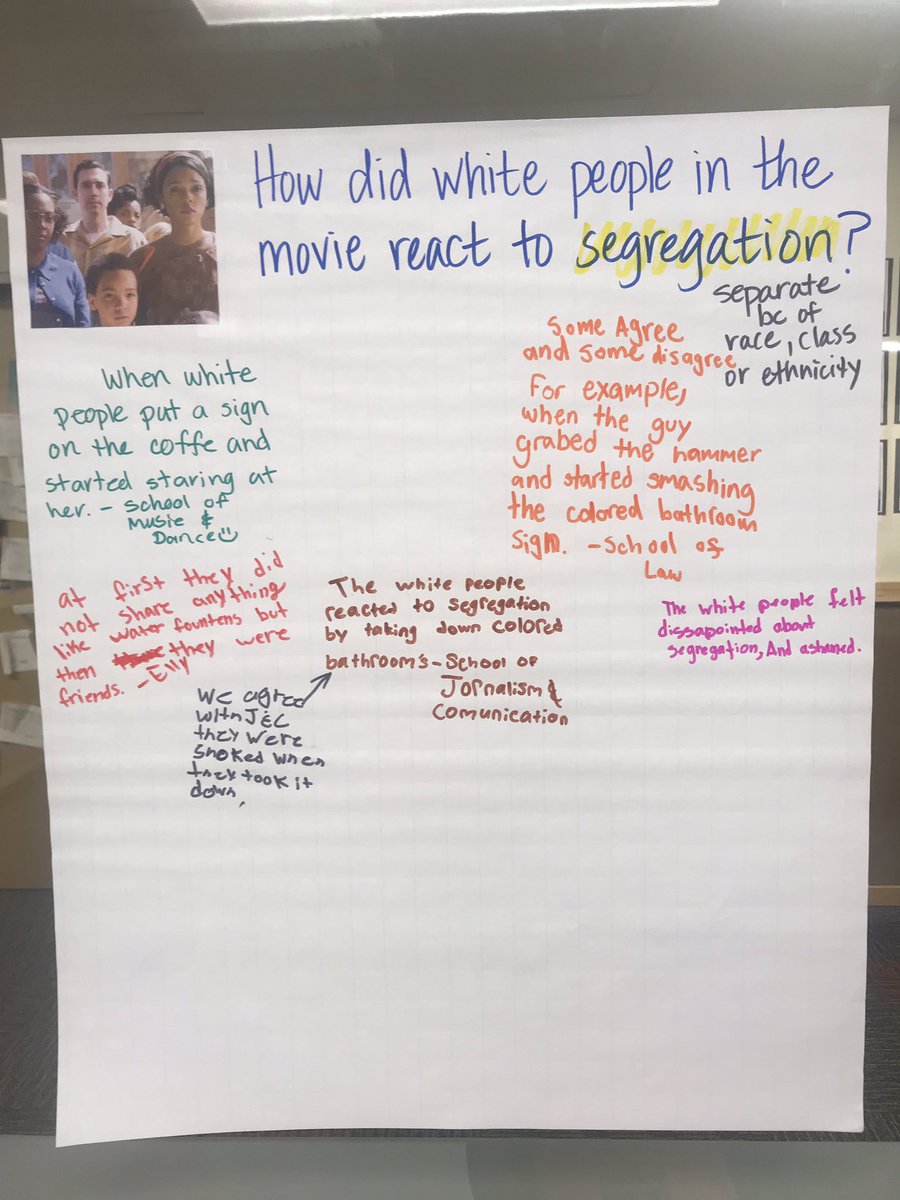 How did white people in the
movie react to segregation?
separate
bc of
race, class
or ethnicity
Some Agree
and some disagree
For example,
when the guy
grabed the hammer
and started smashing
the colored bathroom
sign. - School of
Law
When white
people put a sign
on the coffe and
started staring at
her. - School of
Music &
Dance☺
at first they did
not share anything
like water fountens but
then they were
friends. - Elly
The white people
reacted to segregation
by taking down colored
bathroom's - School of
Jornalism &
Comunication
We agree
with J&C
they were
shoked when
they took it
down,
The white people felt
dissapointed about
segregation, And ashamed.